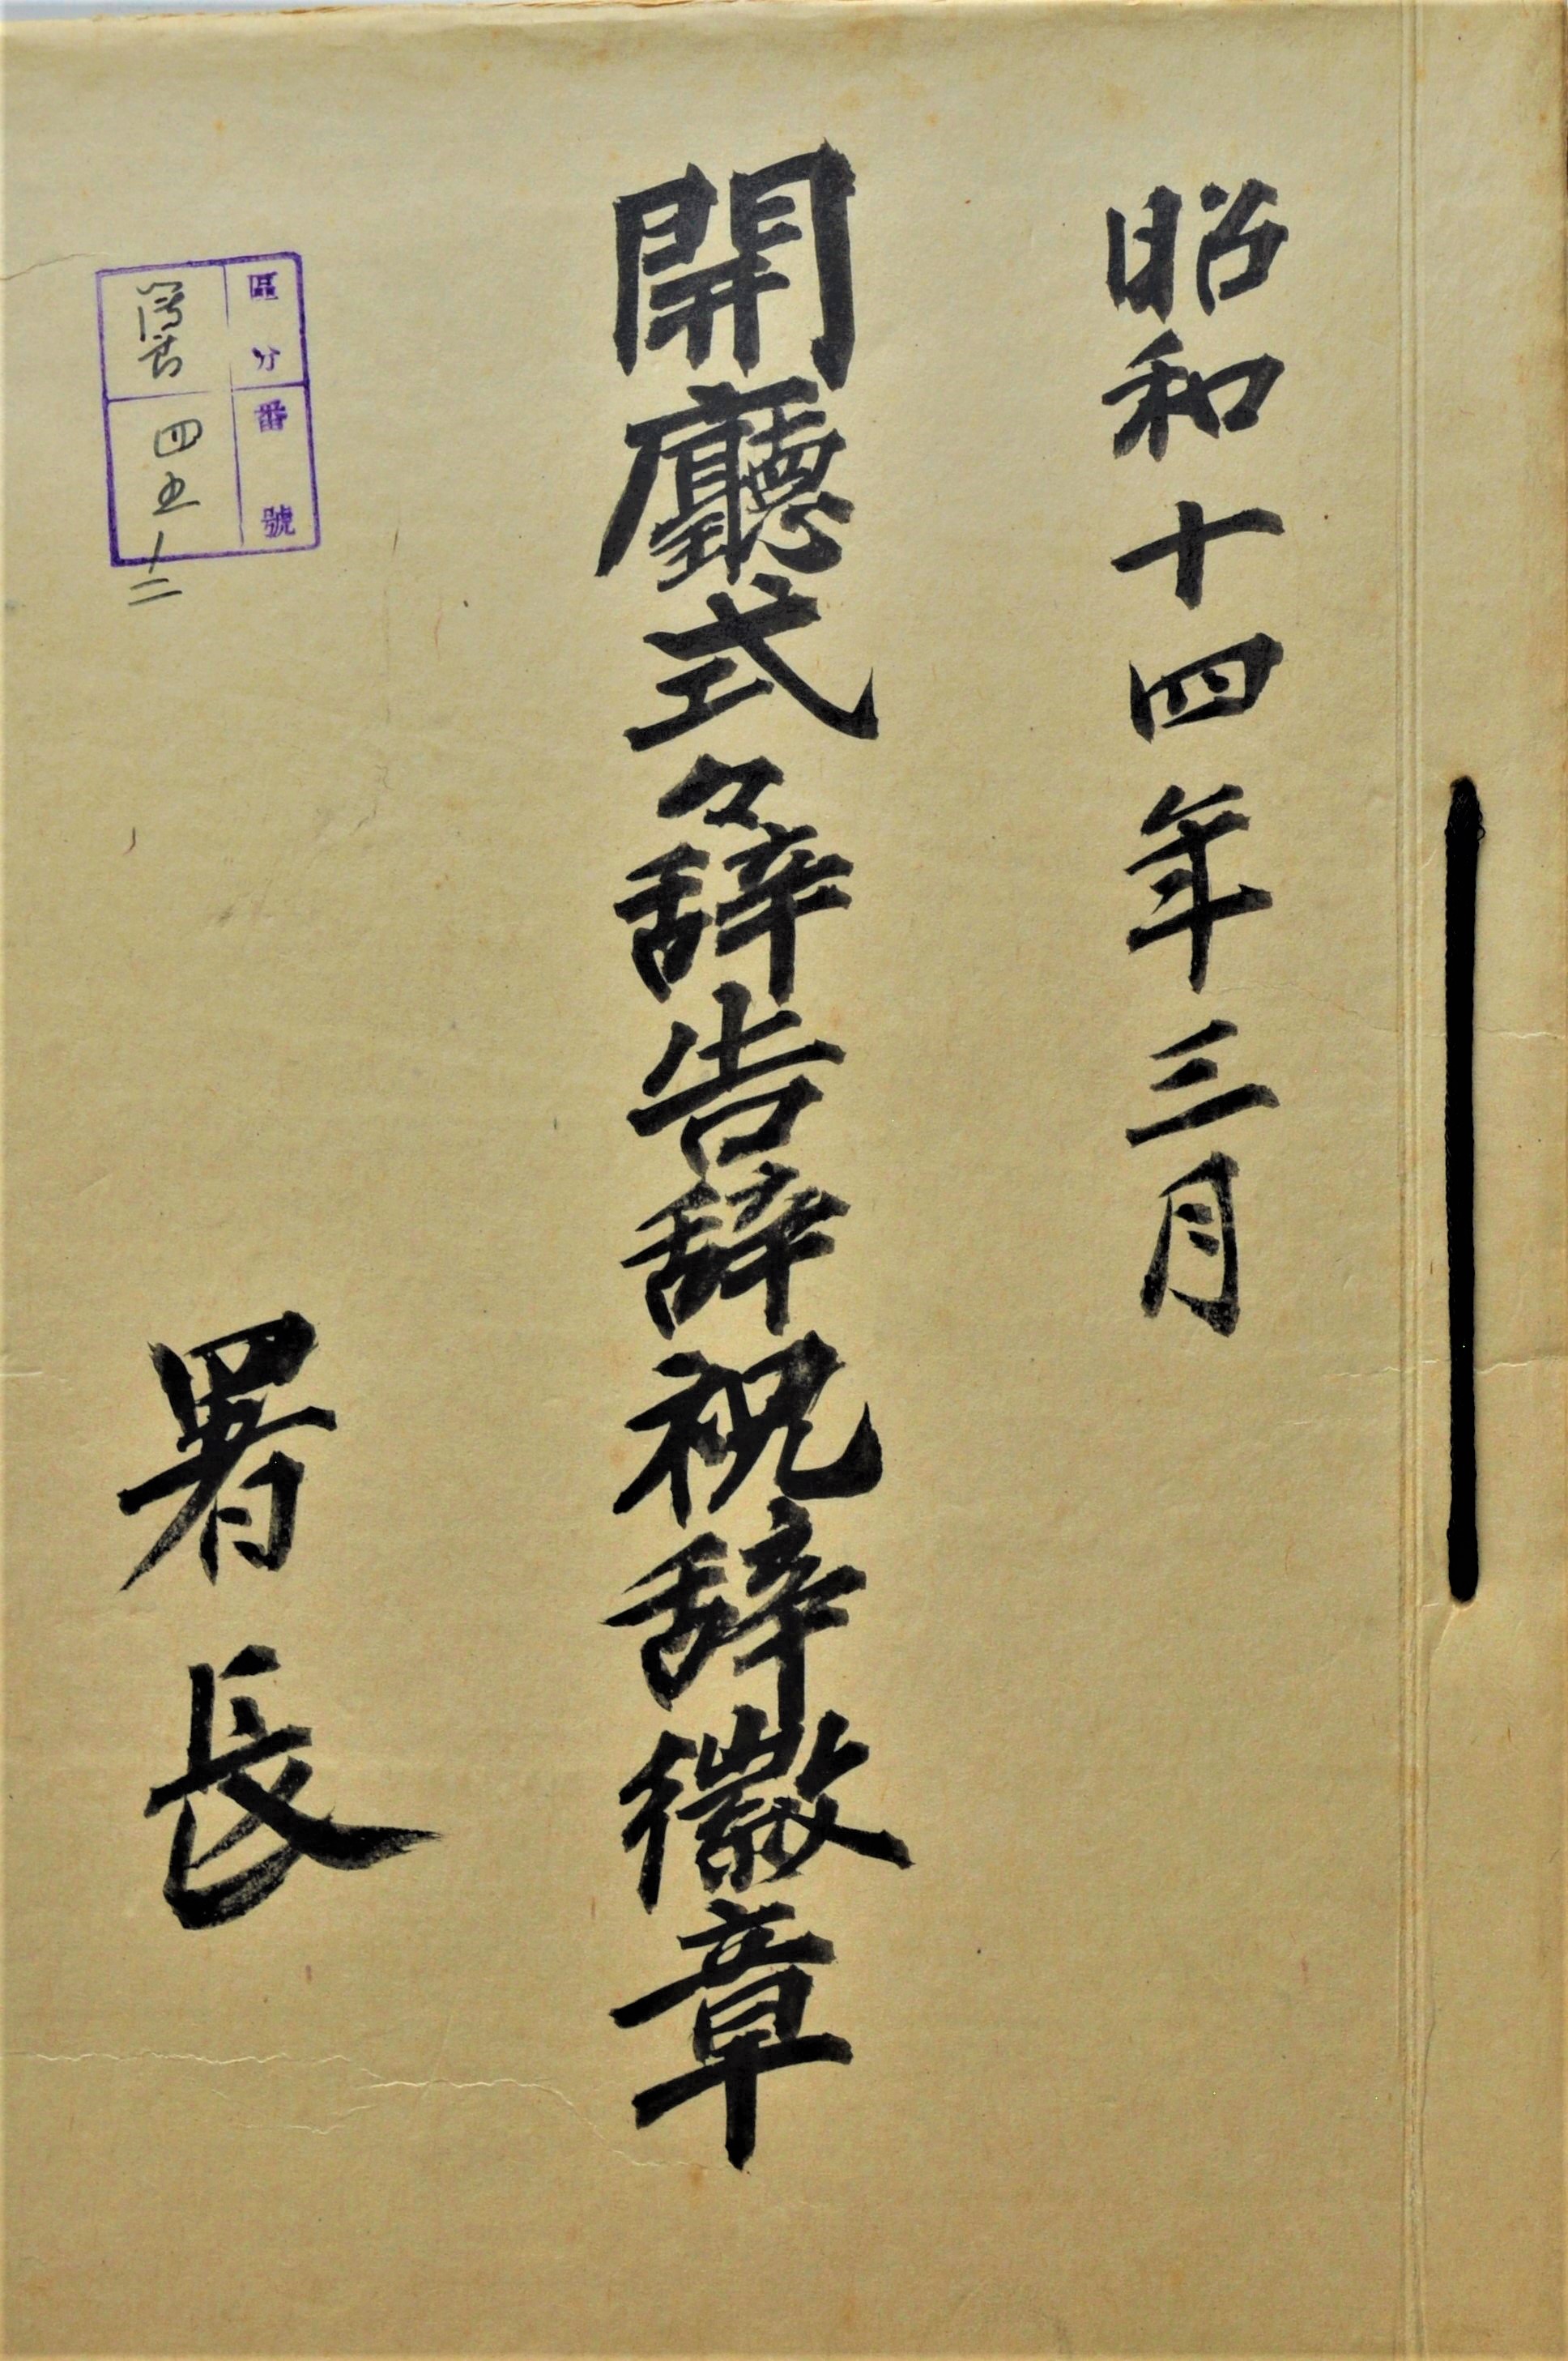 昭和十四年三月
開廳式々辞告辞祝辞徽章
署長
區分
番號
四五ノ二